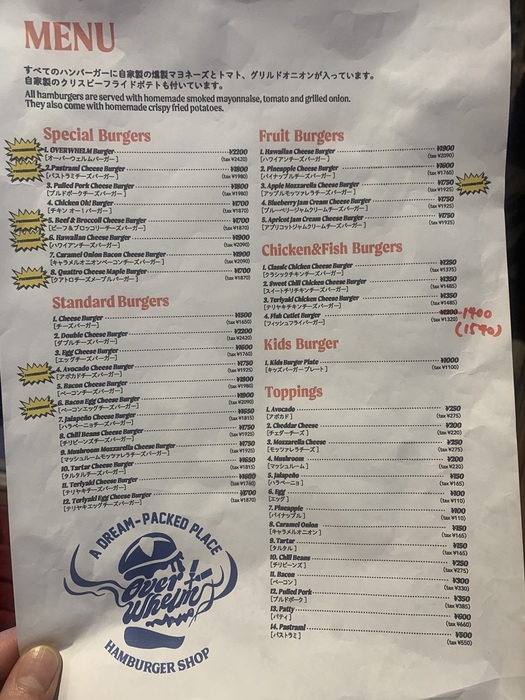 MENU
すべてのハンバーガーに自家製の燻製マヨネーズとトマト、グリルドオニオンが入っています。
自家製のクリスピーフライドポテトも付いています。
All hamburgers are served with homemade smoked mayonnaise, tomato and grilled onion.
They also come with homemade crispy fried potatoes.
Special Burgers
1. OVERWHELM Burger ¥2200
[オーバーウェルムバーガー] (tax ¥2420)
2. Pastrami Cheese Burger ¥1800
[パストラミチーズバーガー] (tax ¥1980)
3. Pulled Pork Cheese Burger ¥1800
[プルドポークチーズバーガー] (tax ¥1980)
4. Chicken Oh! Burger ¥1700
[チキンオー!バーガー] (tax ¥1870)
5. Beef & Broccoli Cheese Burger ¥1700
[ビーフ&ブロッコリーチーズバーガー] (tax ¥1870)
6. Hawaiian Cheese Burger ¥1900
[ハワイアンチーズバーガー] (tax ¥2090)
7. Caramel Onion Bacon Cheese Burger ¥1900
[キャラメルオニオンベーコンチーズバーガー] (tax ¥2090)
8. Quattro Cheese Maple Burger ¥1700
[クアトロチーズメープルバーガー] (tax ¥1870)
Standard Burgers
1. Cheese Burger ¥1500
[チーズバーガー] (tax ¥1650)
2. Double Cheese Burger ¥2200
[ダブルチーズバーガー] (tax ¥2420)
3. Egg Cheese Burger ¥1600
[エッグチーズバーガー] (tax ¥1760)
4. Avocado Cheese Burger ¥1750
[アボカドチーズバーガー] (tax ¥1925)
5. Bacon Cheese Burger ¥1800
[ベーコンチーズバーガー] (tax ¥1980)
6. Bacon Egg Cheese Burger ¥1900
[ベーコンエッグチーズバーガー] (tax ¥2090)
7. Jalapeño Cheese Burger ¥1650
[ハラペーニョチーズバーガー] (tax ¥1815)
8. Chili Beans Cheese Burger ¥1750
[チリビーンズチーズバーガー] (tax ¥1925)
9. Mushroom Mozzarella Cheese Burger ¥1750
[マッシュルームモッツァレラチーズバーガー] (tax ¥1925)
10. Tartar Cheese Burger ¥1650
[タルタルチーズバーガー] (tax ¥1815)
11. Teriyaki Cheese Burger ¥1600
[テリヤキチーズバーガー] (tax ¥1760)
12. Teriyaki Egg Cheese Burger ¥1700
[テリヤキエッグチーズバーガー] (tax ¥1870)
A DREAM-PACKED PLACE
Over Whelm
HAMBURGER SHOP
Fruit Burgers
1. Hawaiian Cheese Burger ¥1900
[ハワイアンチーズバーガー] (tax ¥2090)
2. Pineapple Cheese Burger ¥1600
[パイナップルチーズバーガー] (tax ¥1760)
3. Apple Mozzarella Cheese Burger ¥1750
[アップルモッツァレラチーズバーガー] (tax ¥1925)
4. Blueberry Jam Cream Cheese Burger ¥1750
[ブルーベリージャムクリームチーズバーガー] (tax ¥1925)
5. Apricot Jam Cream Cheese Burger ¥1750
[アプリコットジャムクリームチーズバーガー] (tax ¥1925)
Chicken&Fish Burgers
1. Classic Chicken Cheese Burger ¥1250
[クラシックチキンチーズバーガー] (tax ¥1375)
2. Sweet Chili Chicken Cheese Burger ¥1350
[スイートチリチキンチーズバーガー] (tax ¥1485)
3. Teriyaki Chicken Cheese Burger ¥1350
[テリヤキチキンチーズバーガー] (tax ¥1485)
4. Fish Cutlet Burger ¥1200 1400
[フィッシュフライバーガー] (tax ¥1320) (1540)
Kids Burger
1. Kids Burger Plate ¥1000
[キッズバーガープレート] (tax ¥1100)
Toppings
1. Avocado ¥250
[アボカド] (tax ¥275)
2. Cheddar Cheese ¥200
[チェダーチーズ] (tax ¥220)
3. Mozzarella Cheese ¥250
[モッツァレラチーズ] (tax ¥275)
4. Mushroom ¥200
[マッシュルーム] (tax ¥220)
5. Jalapeño ¥150
[ハラペーニョ] (tax ¥165)
6. Egg ¥100
[エッグ] (tax ¥110)
7. Pineapple ¥100
[パイナップル] (tax ¥110)
8. Caramel Onion ¥150
[キャラメルオニオン] (tax ¥165)
9. Tartar ¥150
[タルタル] (tax ¥165)
10. Chili Beans ¥250
[チリビーンズ] (tax ¥275)
11. Bacon ¥300
[ベーコン] (tax ¥330)
12. Pulled Pork ¥350
[プルドポーク] (tax ¥385)
13. Patty ¥600
[パティ] (tax ¥660)
14. Pastrami ¥500
[パストラミ] (tax ¥550)